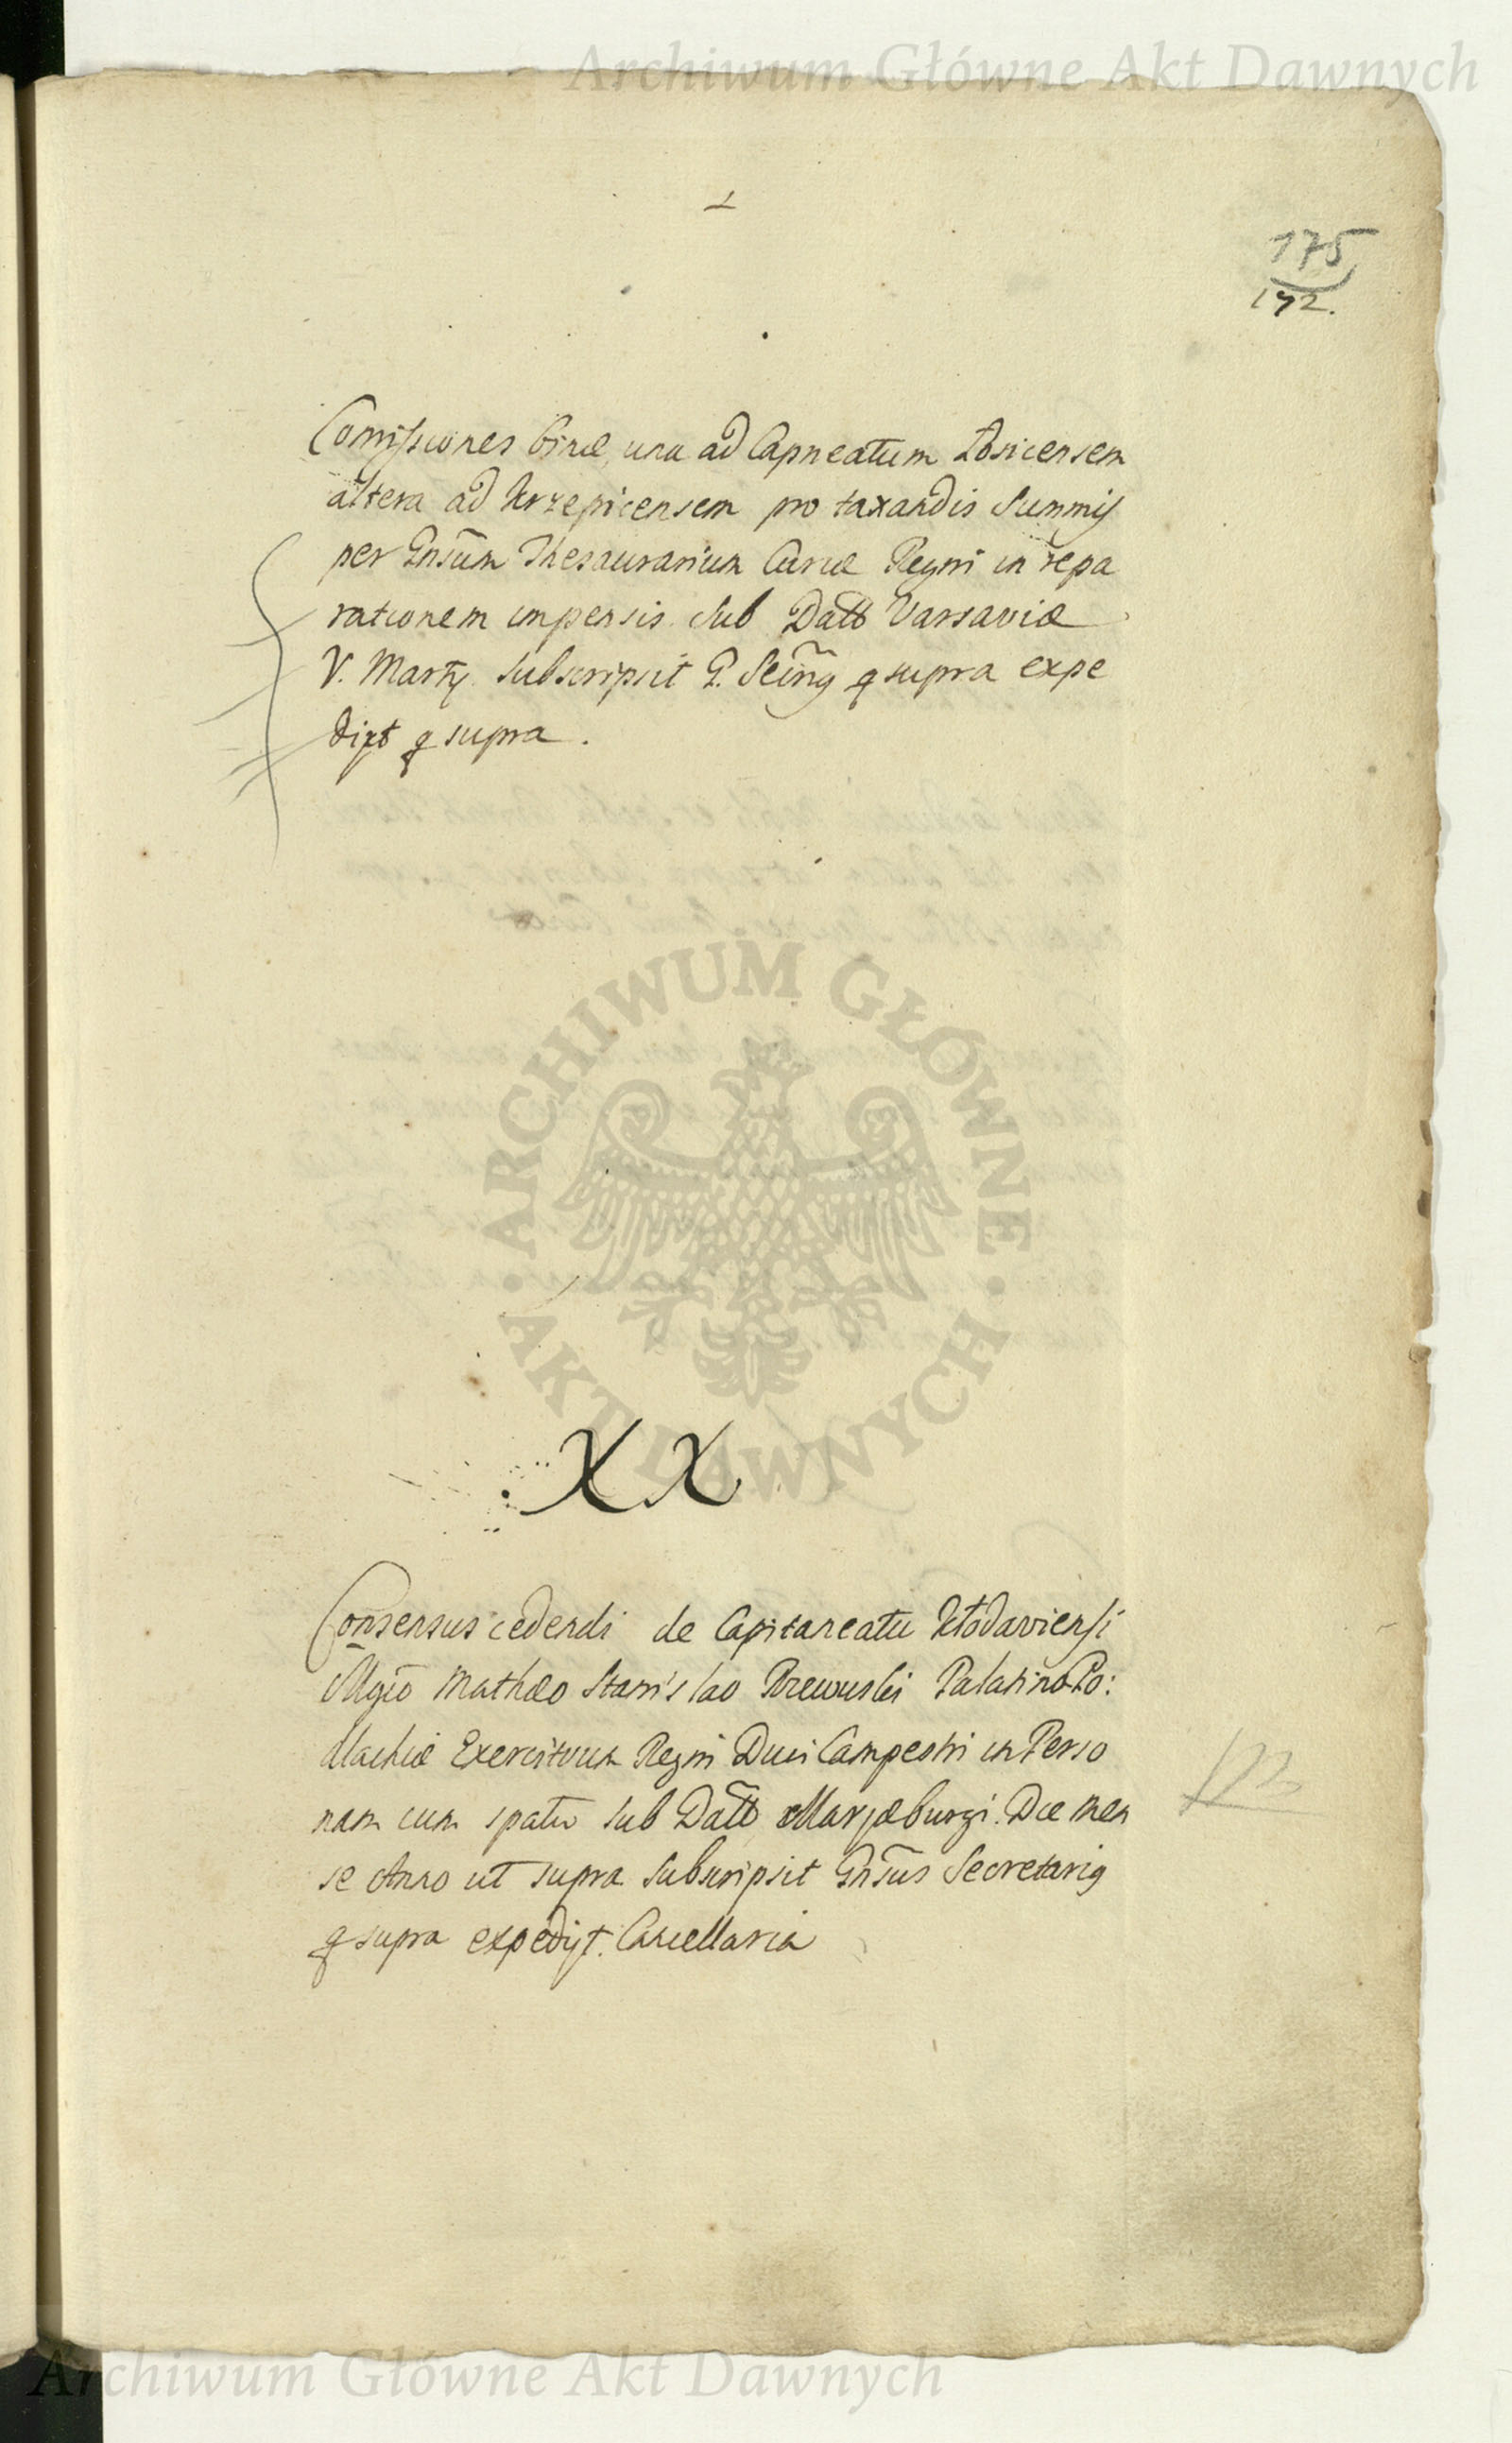 Archiwum Główne Akt Dawnych
175
172.
Comissiones binæ, una ad Capneatum Łosicensem
altera ad Krzepicensem pro taxandis Summis
per Gnsum Thesaurarium Curiæ Regni in repa
rationem impensis. Sub Datt Varsaviæ
V. Martij. Subscripsit G. Scrius q supra expe
dijt q supra.
ARCHIWUM GŁÓWNE
AKT DAWNYCH
XX
Consensus cedendi de Capitaneatu Kłodaviensi
Mgco Mathæo Stanislao Rzewuski Palatino Po:
dlachiæ Exercituum Regni Duci Campestri in Perso
nam cum spatio Sub Datt Marjæburgi. Die Men
se Anno ut supra Subscripsit Gnsus Secretarius
q supra expedijt. Cancellaria
Archiwum Główne Akt Dawnych